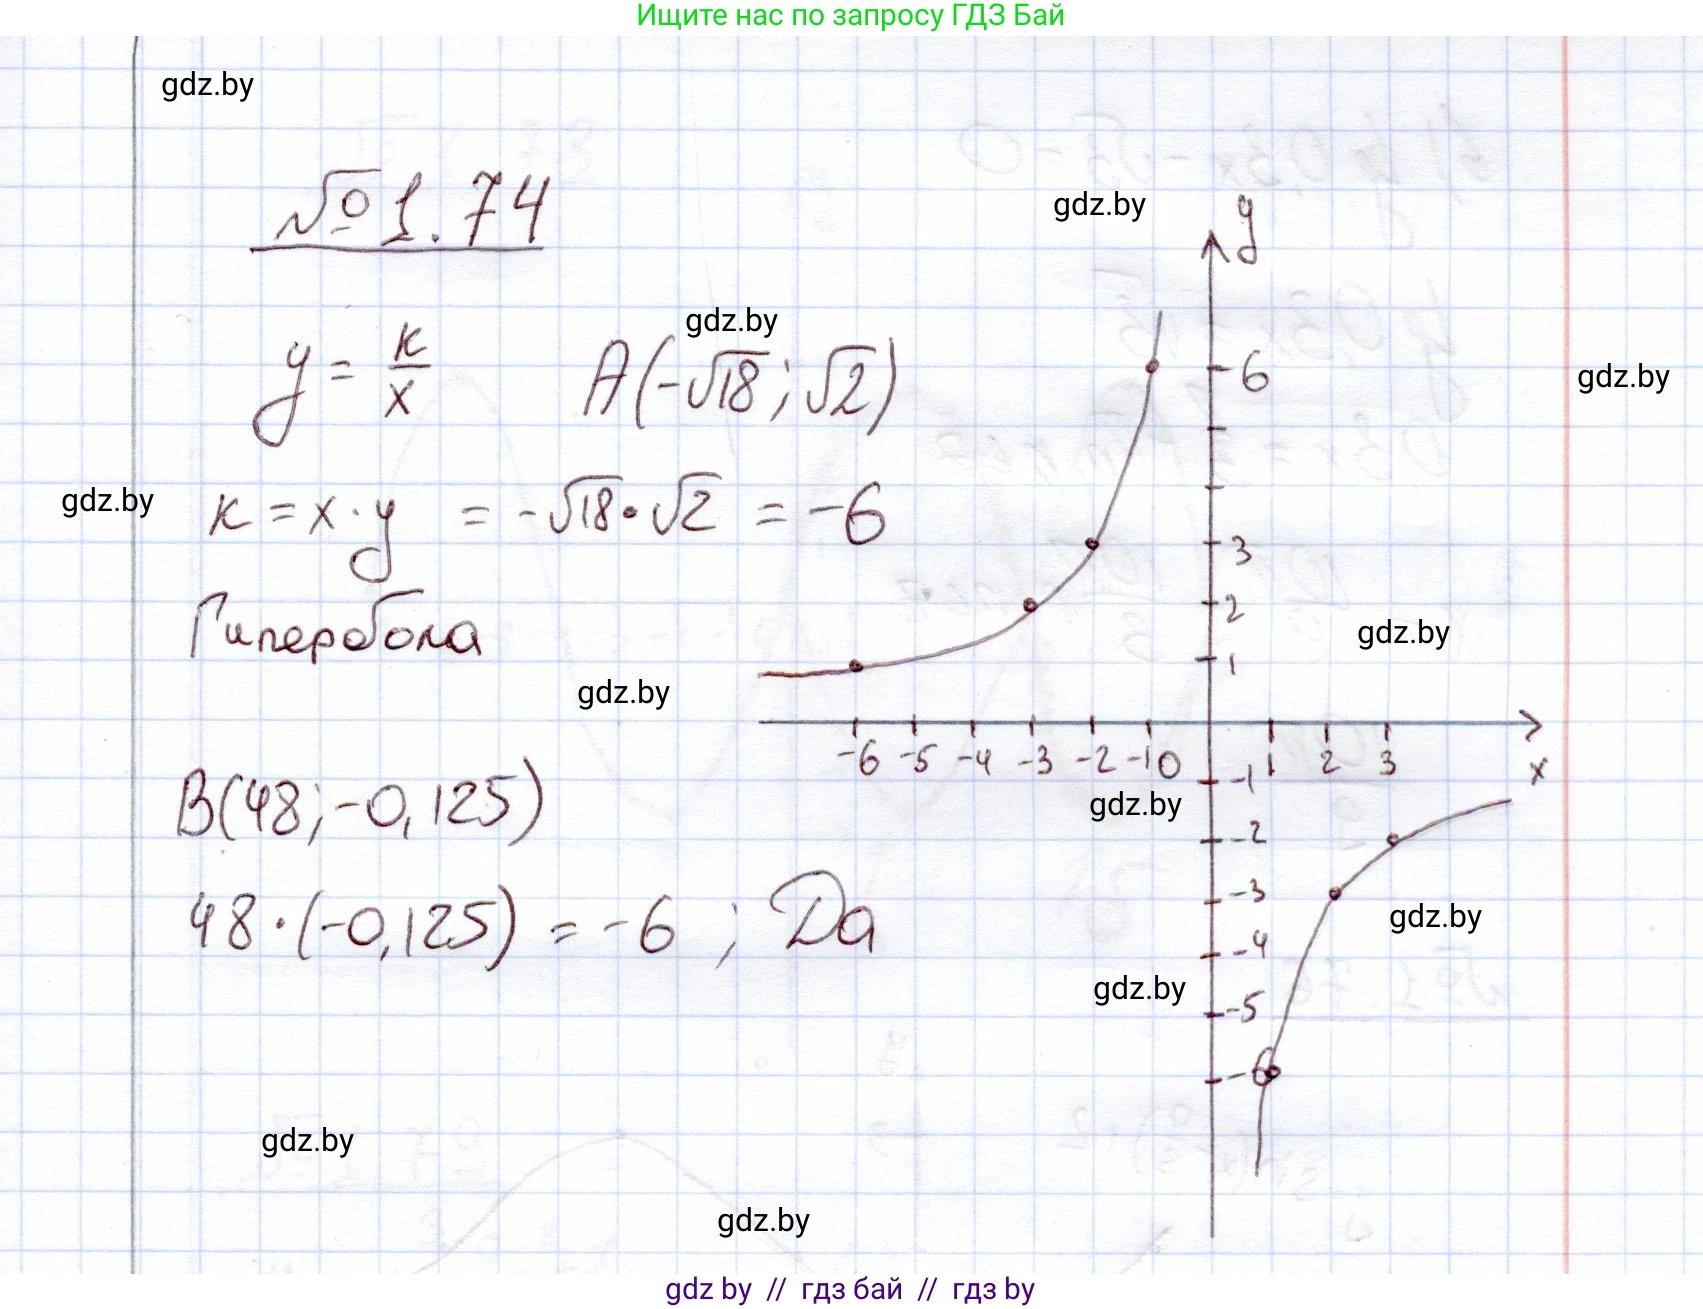 Ищите нас по запросу ГДЗ Бай
gdz.by
№ 1.74
gdz.by
y
gdz.by
y = к/x
A(-√18; √2)
6
gdz.by
gdz.by
к = x · y = -√18 · √2 = -6
3
Гипербола
2
gdz.by
1
gdz.by
-6 -5 -4 -3 -2 -1 0 1 2 3 x
-1
B(48; -0,125)
gdz.by
-2
-3
48 · (-0,125) = -6 ; Да
gdz.by
-4
gdz.by
-5
-6
gdz.by
gdz.by
gdz by // гдз бай // гдз by